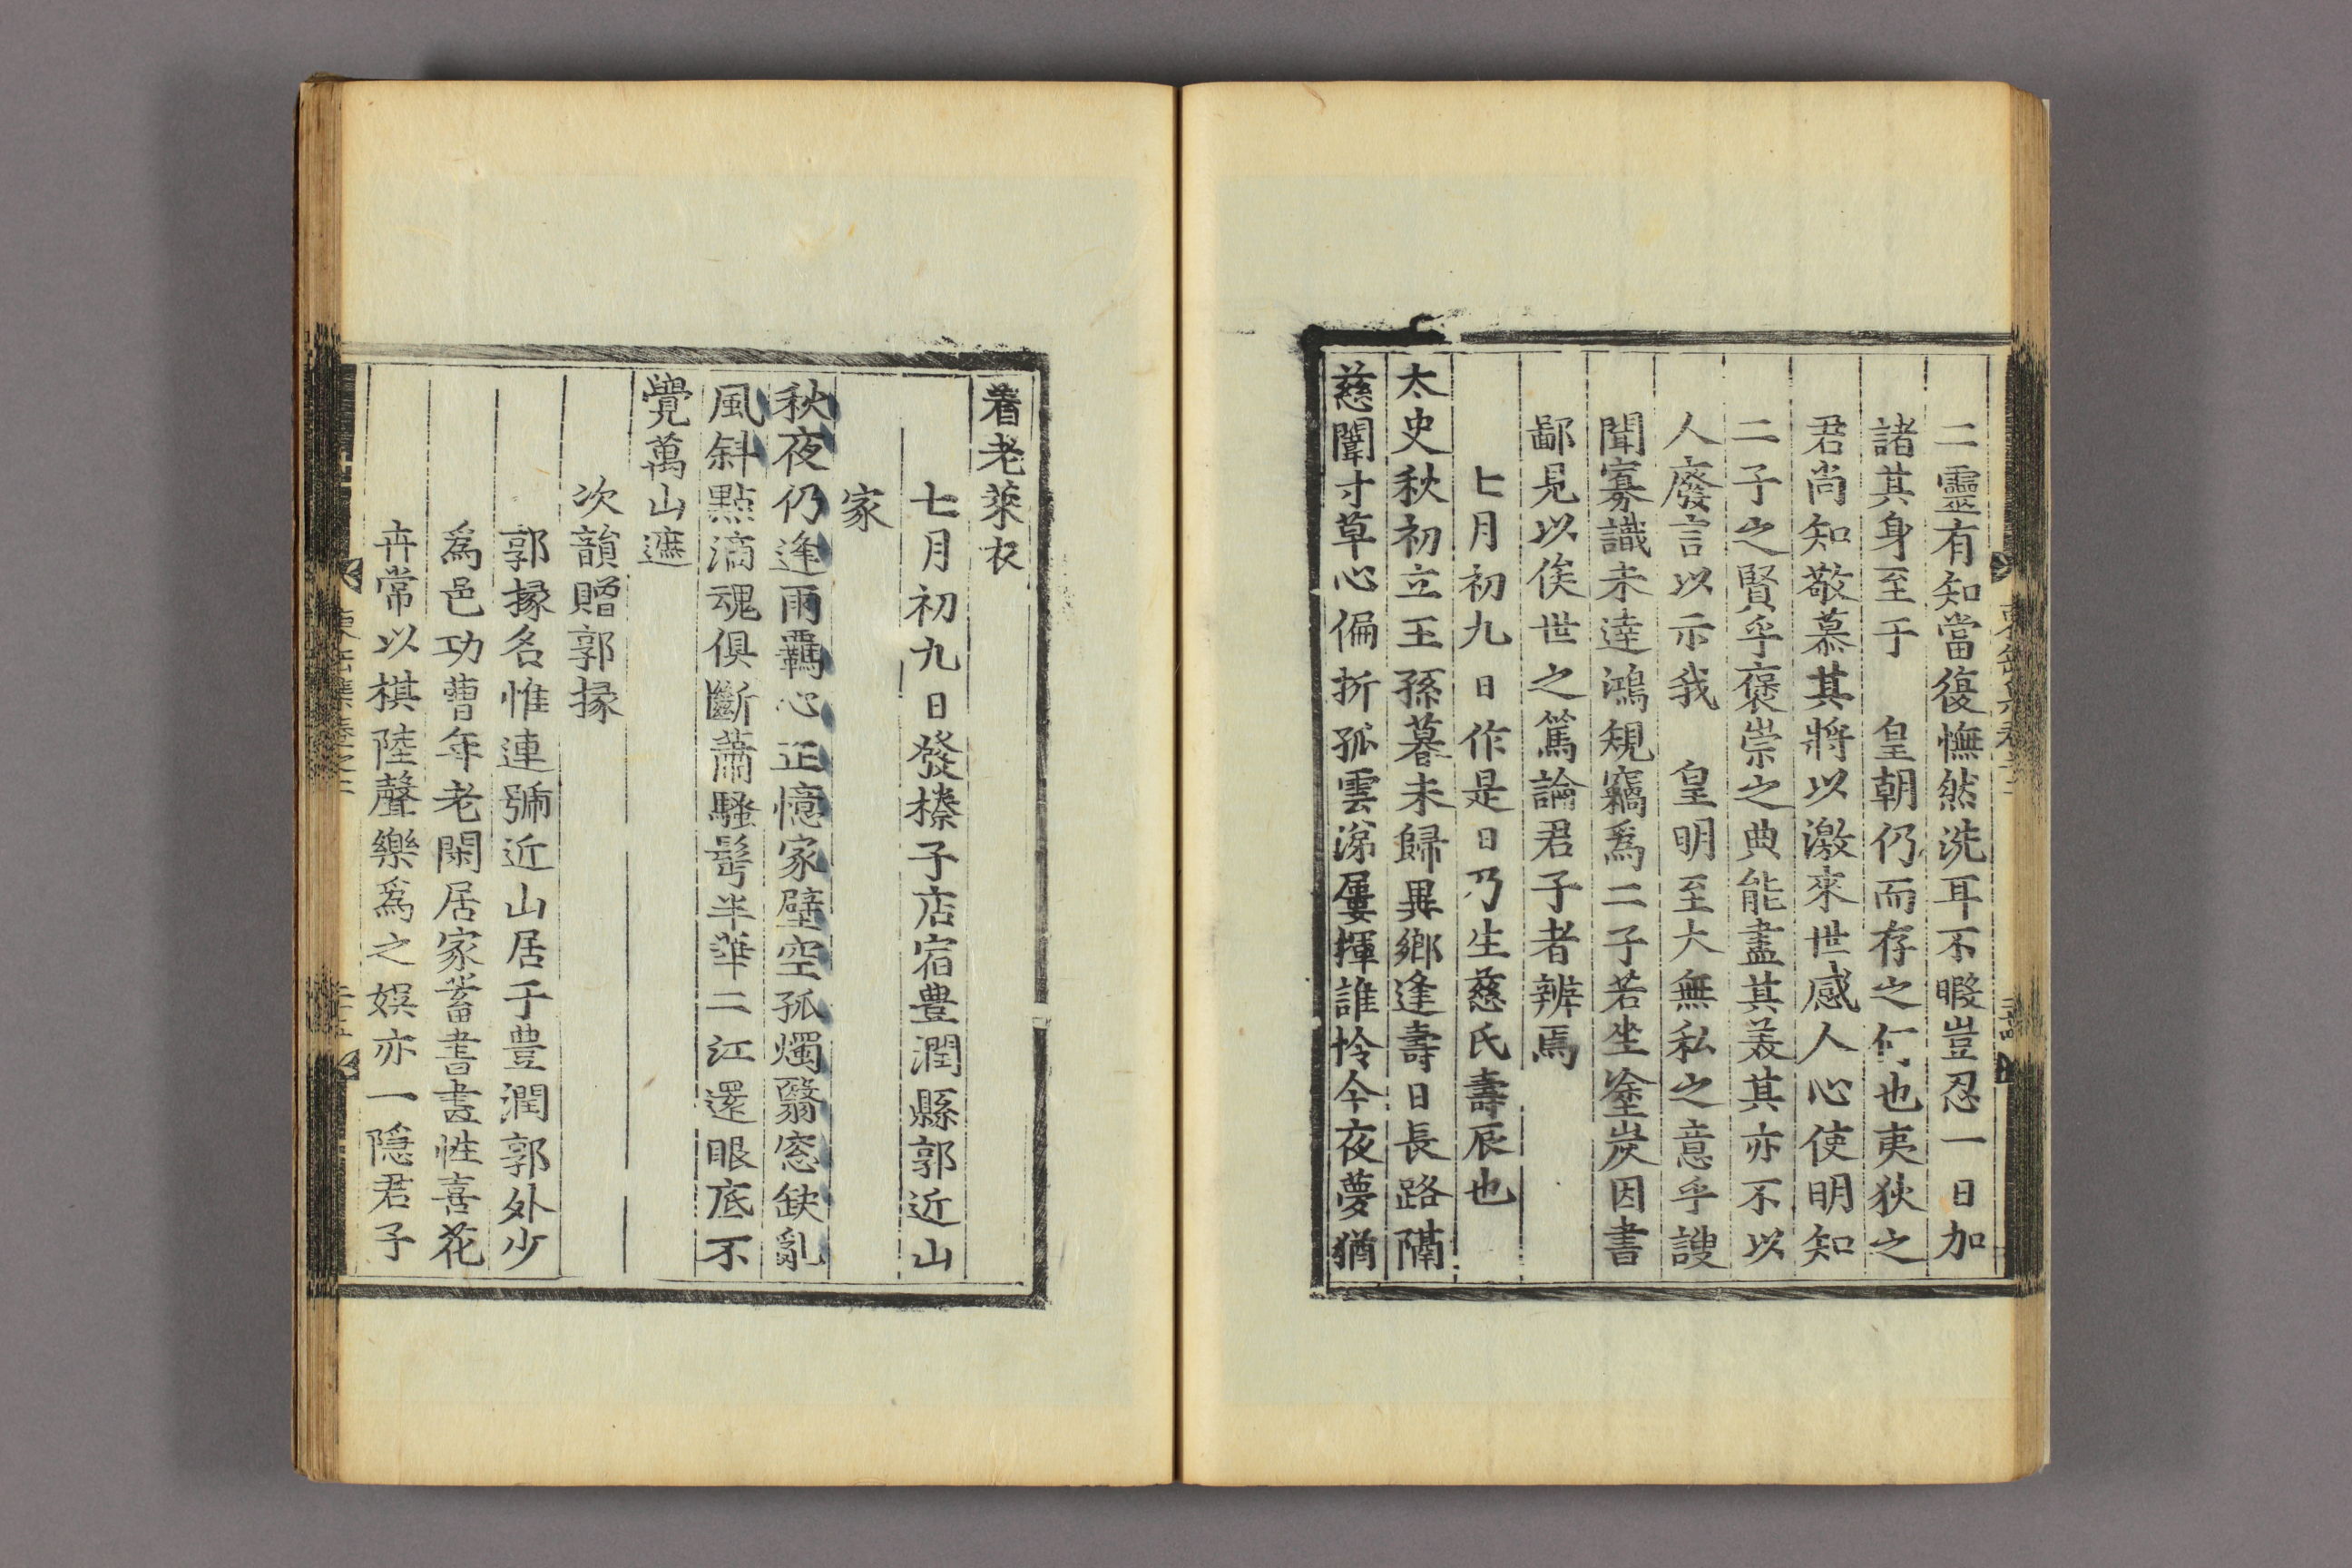 二靈有知當復憮然洗耳不暇豈忍一日加
諸其身至于　皇朝仍而存之何也夷狄之
君尚知敬慕其將以激來世感人心使明知
二子之賢乎褒崇之典能盡其美其亦不以
人廢言以示我　皇明至大無私之意乎謏
聞寡識未達鴻規竊爲二子若坐塗炭因書
鄙見以俟世之篤論君子者辨焉
七月初九日作是日乃生慈氏壽辰也
太史秋初立王孫暮未歸異鄉逢壽日長路隔
慈闈寸草心偏折孤雲涕屢揮誰怜今夜夢猶
着老萊衣
七月初九日發榛子店宿豊潤縣郭近山
家
秋夜仍逢雨羈心正憶家壁空孤燭翳窓缺亂
風斜點滴魂俱斷蕭騷髩半華二江還眼底不
覺萬山遮
次韻贈郭掾
郭掾名惟連號近山居于豊潤郭外少
爲邑功曹年老閑居家蓄書畫性喜花
卉常以棋陸聲樂爲之娛亦一隱君子